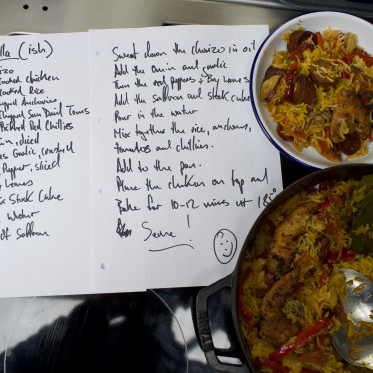 lla (ish)
izo
ooked chicken
ooked Rice
opped Anchovies
Chopped Sun Dried Toms
Pickled Red Chillies
on, sliced
es Garlic, crushed
Pepper, sliced
y Leaves
ic Stock Cube
Water
of Saffron
Sweat down the chorizo in oil
Add the onion and garlic
Then the red peppers + Bay leaves
Add the Saffron and Stock cube
Pour in the water
Mix together the rice, anchovies,
tomatoes and chillies.
Add to the pan.
Place the chicken on top and
Bake for 10-12 mins at 185°
Serve!
STAUB